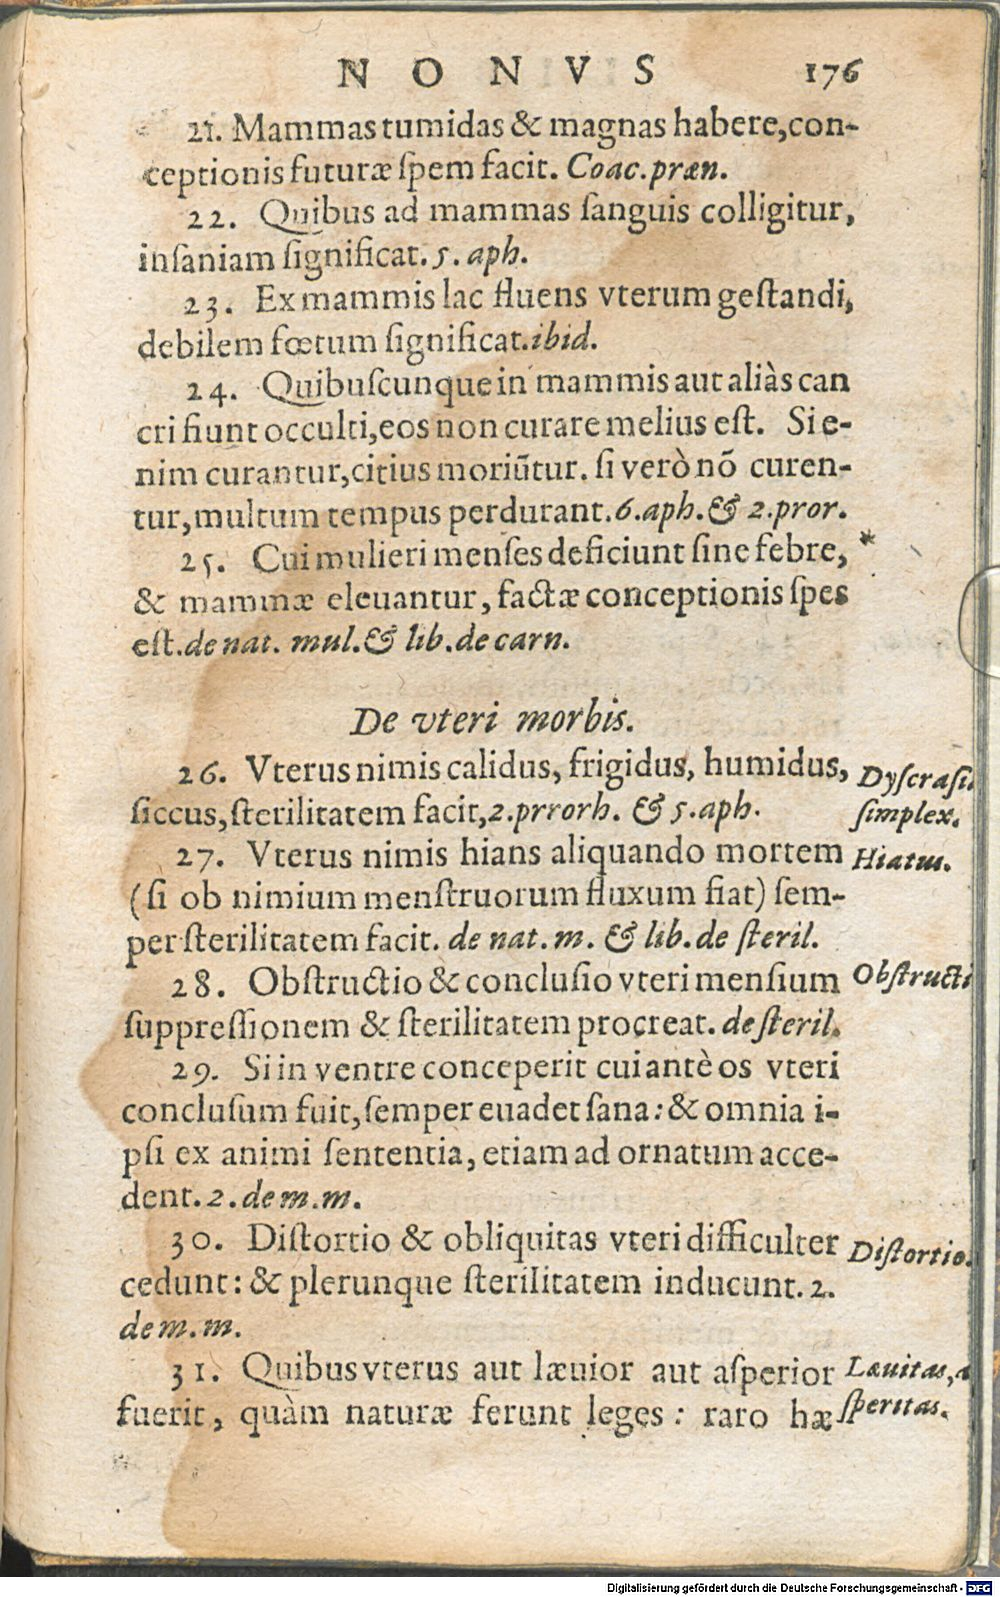 NONVS 176
21. Mammas tumidas & magnas habere, con-
ceptionis futuræ ſpem facit. Coac. præn.
22. Quibus ad mammas ſanguis colligitur,
inſaniam ſignificat. 5. aph.
23. Ex mammis lac fluens vterum geſtandi,
debilem fœtum ſignificat. ibid.
24. Quibuſcunque in mammis aut aliàs can
cri fiunt occulti, eos non curare melius eſt. Si e-
nim curantur, citius moriũtur. ſi verò nõ curen-
tur, multum tempus perdurant. 6. aph. & 2. pror.
25. Cui mulieri menſes deficiunt ſine febre, *
& mammæ eleuantur, factæ conceptionis ſpes
eſt. de nat. mul. & lib. de carn.
De vteri morbis.
26. Vterus nimis calidus, frigidus, humidus, Dyſcraſi.
ſiccus, ſterilitatem facit, 2. prrorh. & 5. aph. ſimplex.
27. Vterus nimis hians aliquando mortem Hiatus.
(ſi ob nimium menſtruorum fluxum fiat) ſem-
per ſterilitatem facit. de nat. m. & lib. de ſteril.
28. Obſtructio & concluſio vteri menſium Obſtructi
ſuppreſſionem & ſterilitatem procreat. de ſteril.
29. Si in ventre conceperit cui antè os vteri
concluſum fuit, ſemper euadet ſana: & omnia i-
pſi ex animi ſententia, etiam ad ornatum acce-
dent. 2. de m. m.
30. Diſtortio & obliquitas vteri difficulter Diſtortio.
cedunt: & plerunque ſterilitatem inducunt. 2.
de m. m.
31. Quibus vterus aut læuior aut aſperior Læuitas, a
fuerit, quàm naturæ ferunt leges: raro hæ ſperitas.
Digitalisierung gefördert durch die Deutsche Forschungsgemeinschaft - DFG